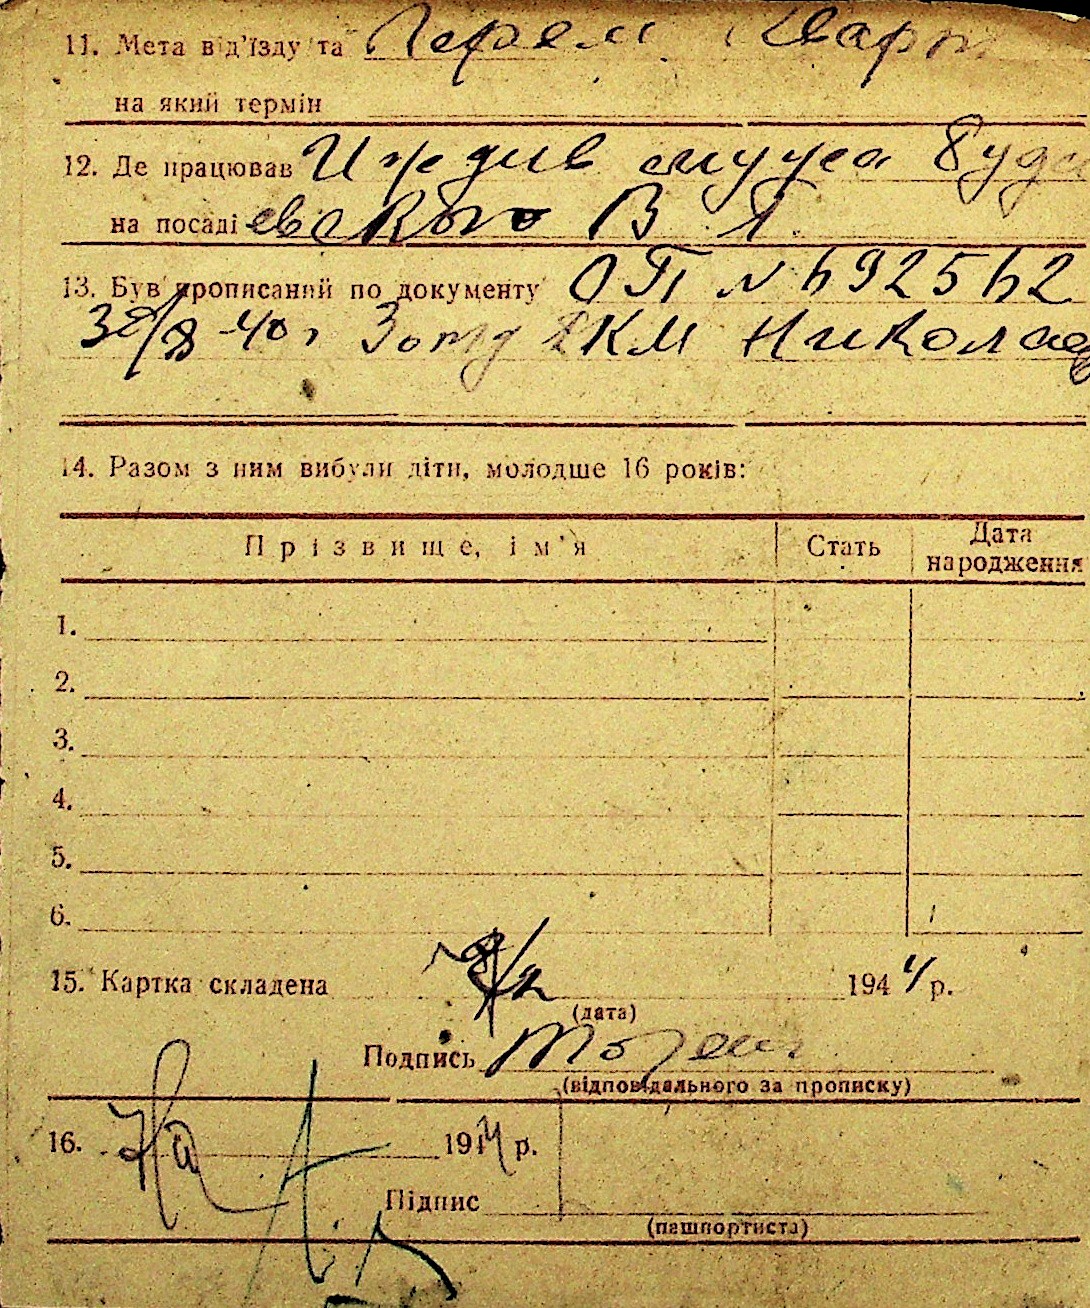 11. Мета від'їзду та
на який термін
12. Де працював Иждив мужа Буда
на посаді евского В
13. Був прописаний по документу ОП № 692562
40 г 3 отд РКМ Николаев
14. Разом з ним вибули діти, молодше 16 років:
Прізвище, ім'я Стать Дата народження
1.
2.
3.
4.
5.
6.
15. Картка складена 1944 р.
(дата)
Подпись
(відповідального за прописку)
16. 1944 р.
Підпис
(пашпортиста)